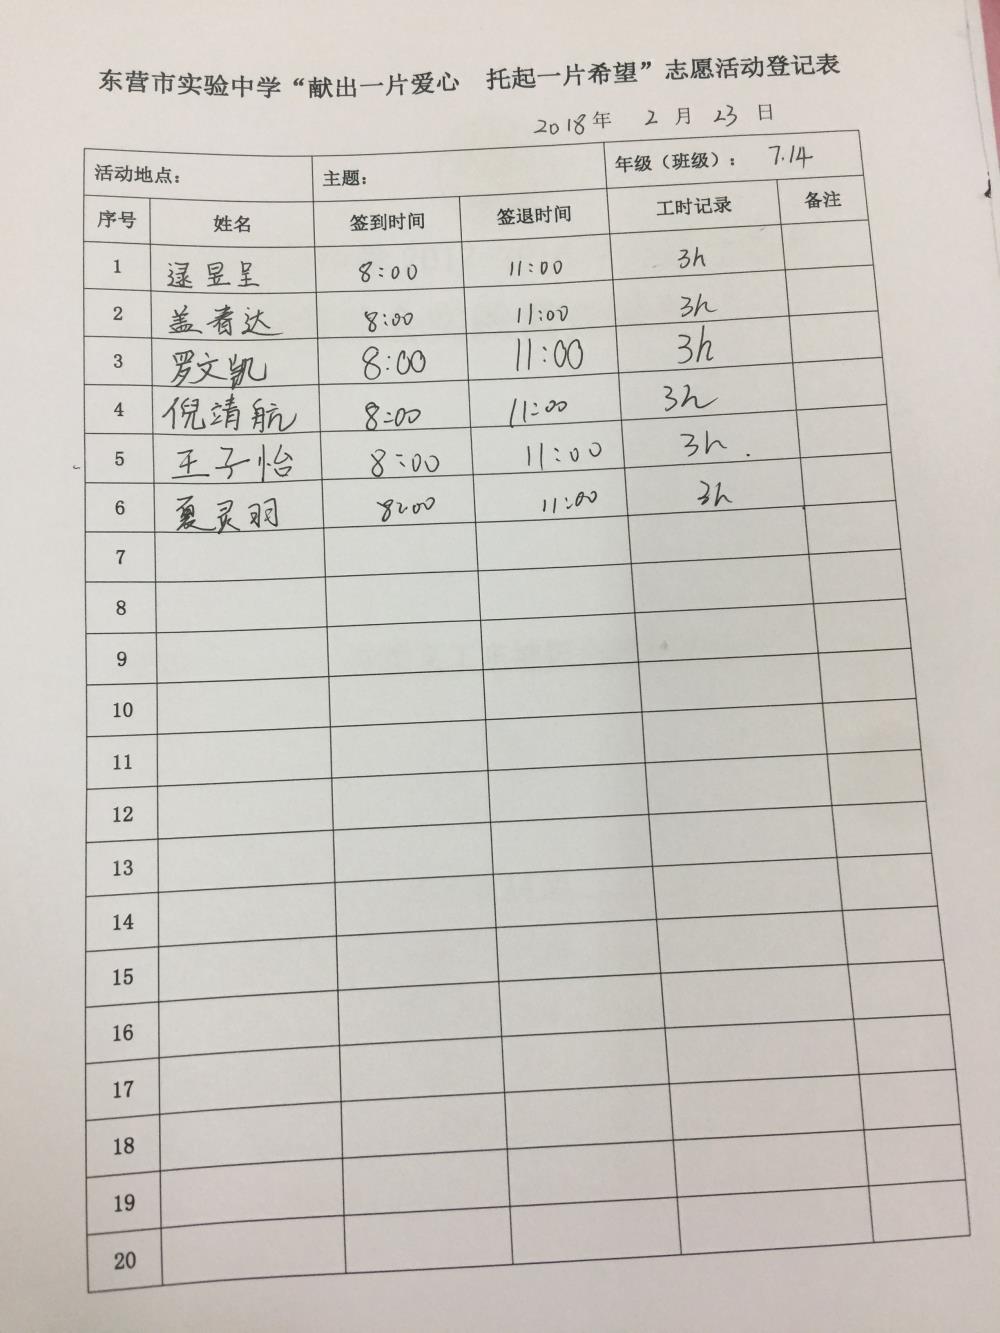 东营市实验中学“献出一片爱心 托起一片希望”志愿活动登记表
2018年 2 月 23 日
活动地点： 主题： 年级（班级）： 7.14
序号 姓名 签到时间 签退时间 工时记录 备注
1 逯昱呈 8:00 11:00 3h
2 盖青达 8:00 11:00 3h
3 罗文凯 8:00 11:00 3h
4 倪靖航 8:00 11:00 3h
5 王子怡 8:00 11:00 3h
6 夏灵羽 8:00 11:00 3h
7
8
9
10
11
12
13
14
15
16
17
18
19
20